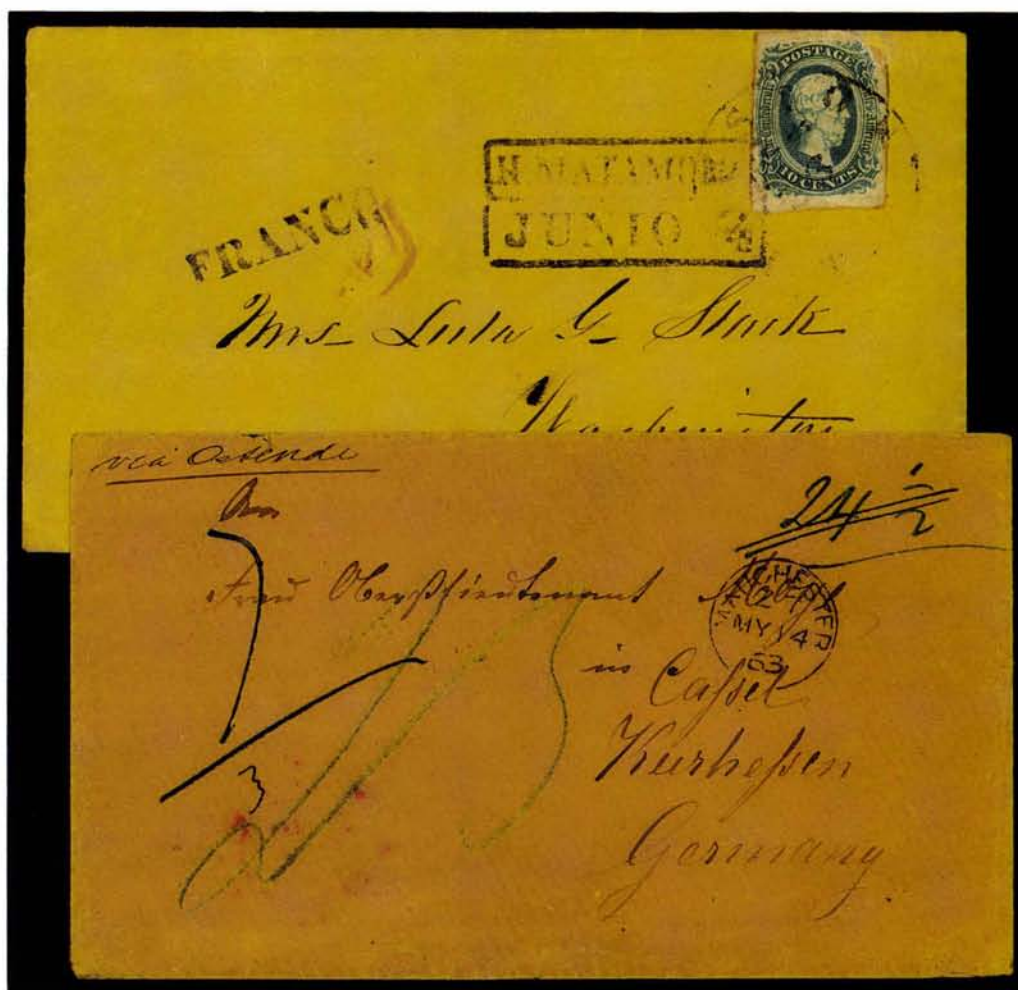 POSTAGE
10 CENTS
H. MATAMOROS
JUNIO
FRANCO
Mrs Lula G Stark
Washington
via Ostende
24 1/2
An
Frau Oberstlieutenant
MANCHESTER
MY 14
63
in
Cassel
Kurhessen
Germany
3